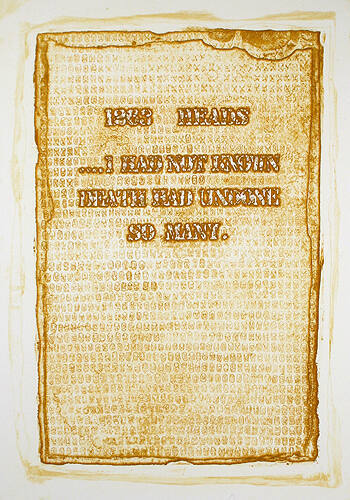 1233 HEADS
....I HAD NOT KNOWN
DEATH HAD UNDONE
SO MANY.